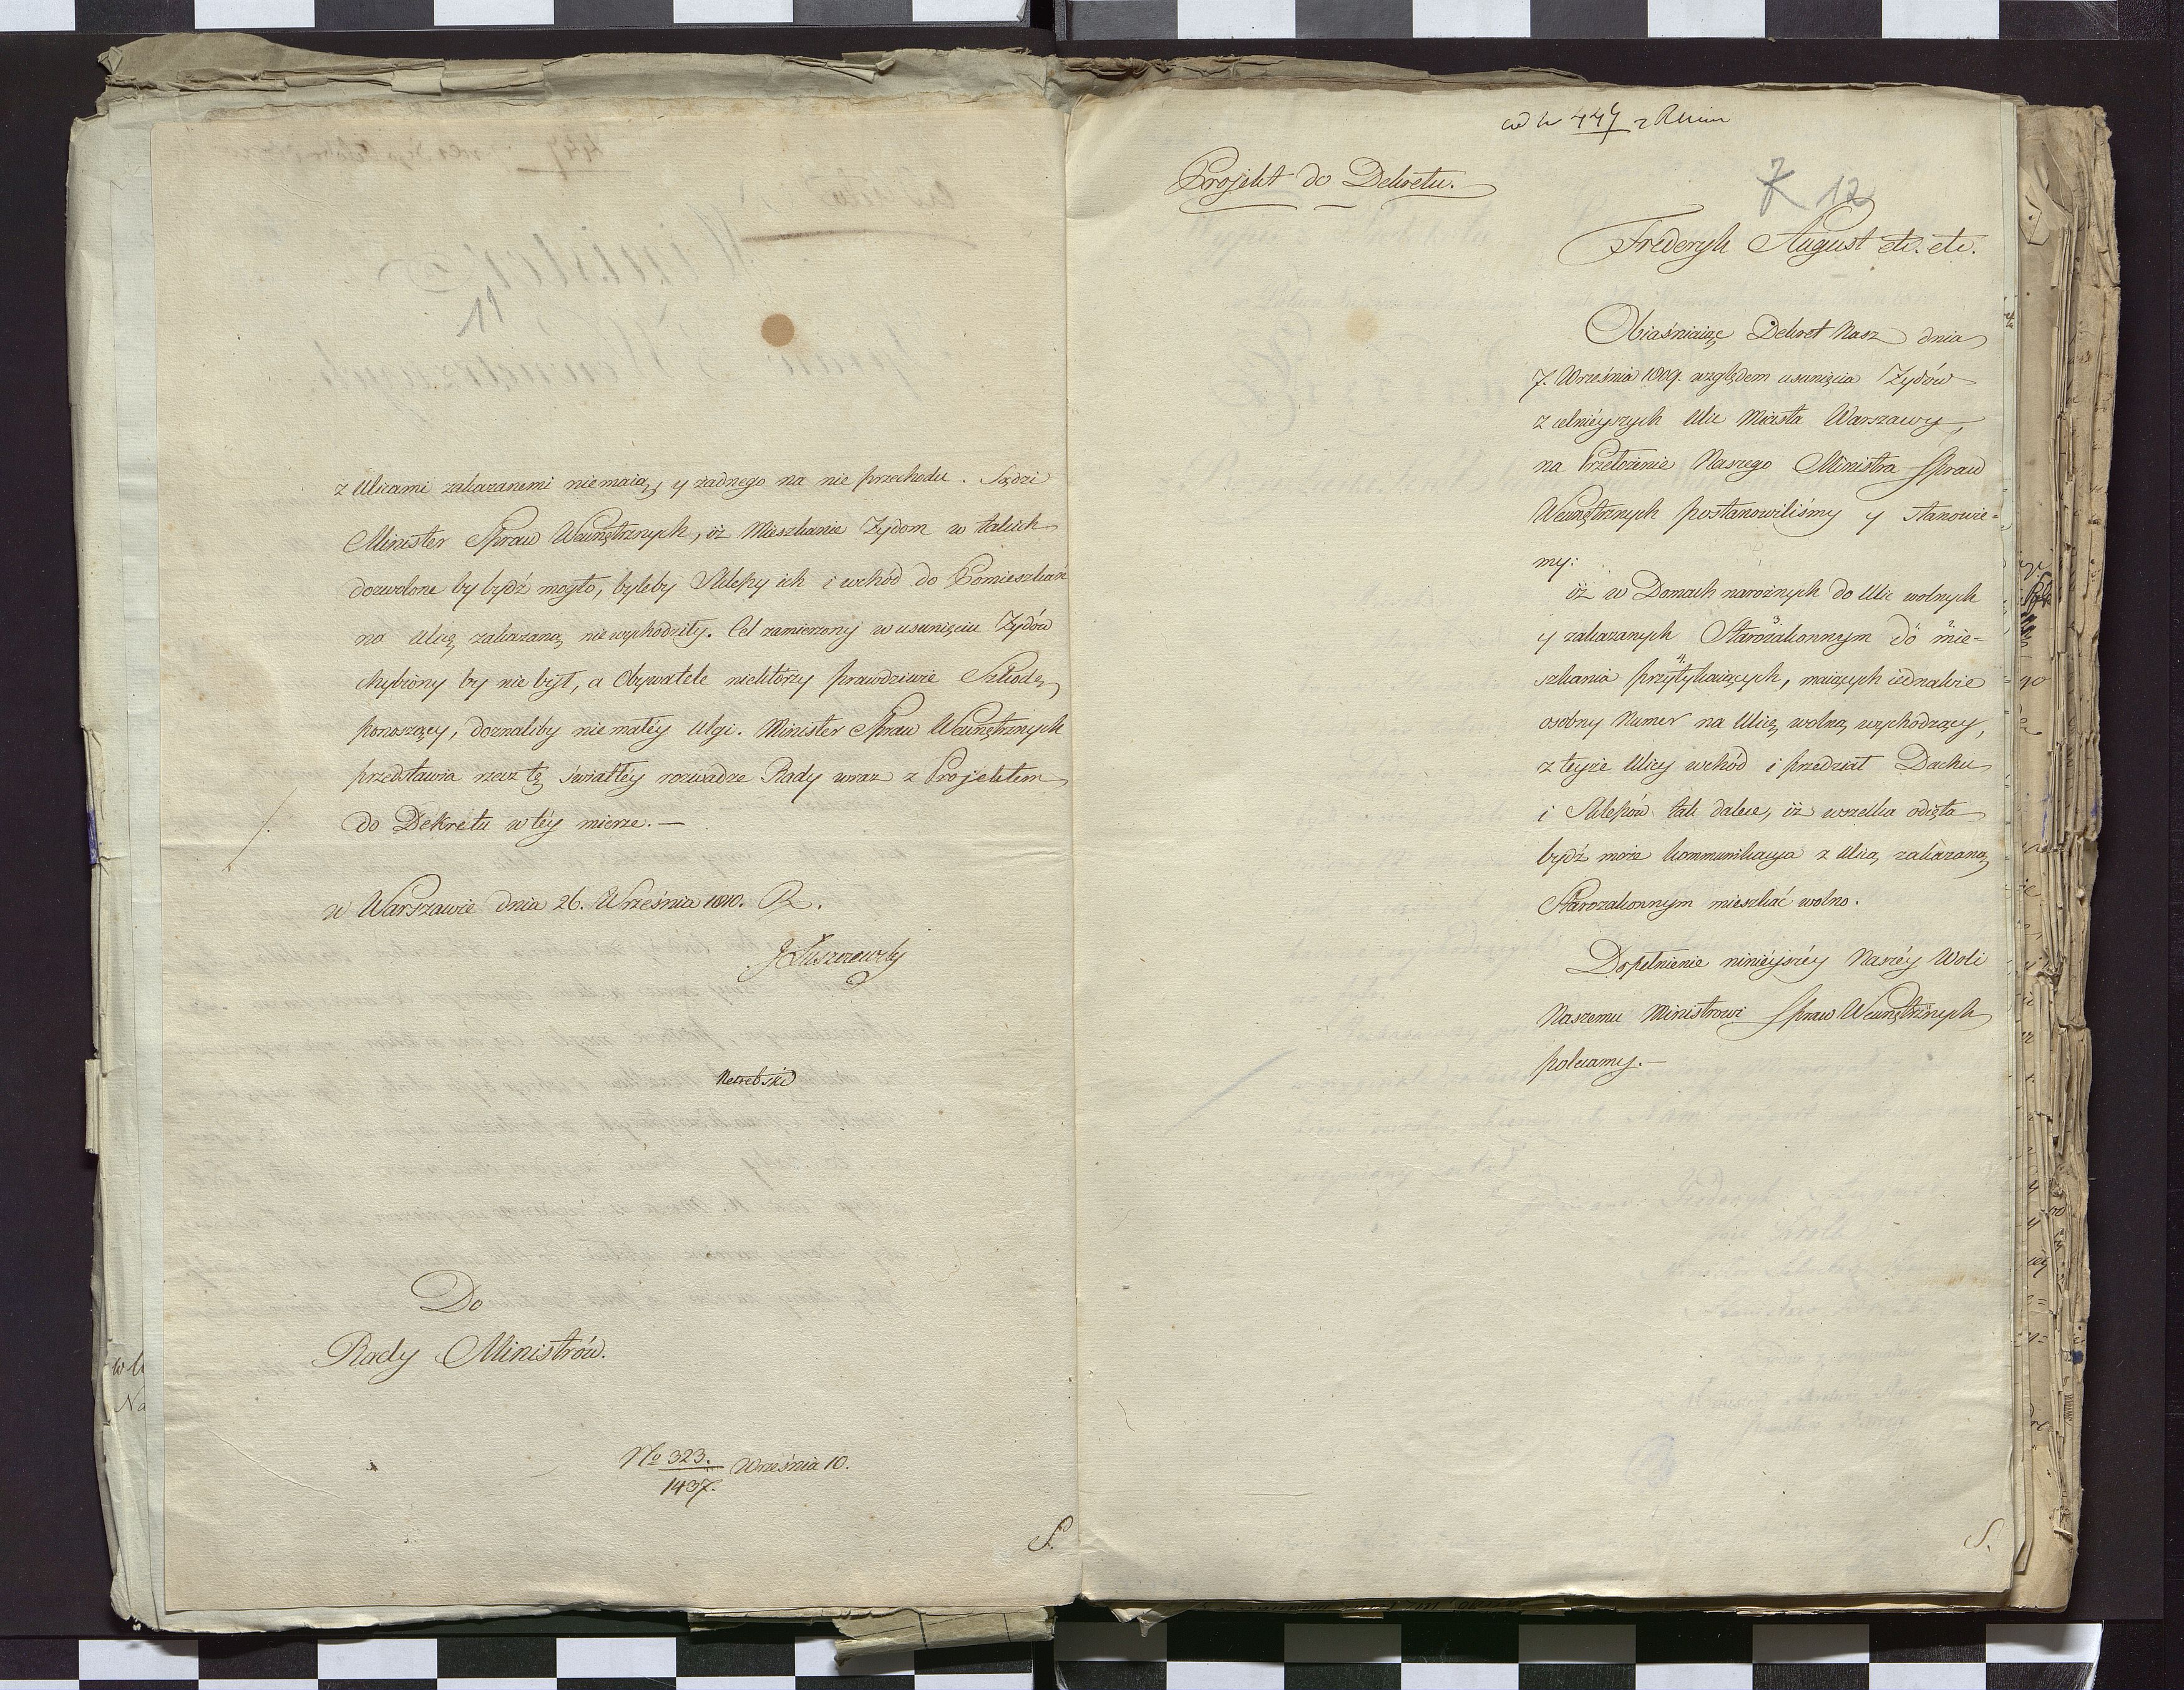 z Ulicami zakazanemi niemaią, y żadnego na nie przechodu. Sądzi
Minister Spraw Wewnętrznych, iż Mieszkanie Żydom w takich
dozwolone by bydź mogło, byleby Sklepy ich i wchód do Pomieszkań
na Ulicę zakazaną nie wychodziły. Cel zamierzony w usunięciu Żydów
chybiony by nie był, a Obywatele niektórzy prawdziwie Szkodę
ponoszący, doznaliby nie małey Ulgi. Minister Spraw Wewnętrznych
przedstawia rzecz tę światłéy rozwadze Rady wraz z Projektem
do Dekretu w téy mierze. —
w Warszawie dnia 26. Września 1810. R.
J Łuszczewski
Netrebski
Do
Rady Ministrów.
No 323.
1437. Września 10.
S.
447
Projekt do Dekretu.
12
Frideryk August etc. etc.
Obiaśniaiąc Dekret Nasz dnia
7. Września 1809. względem usunięcia Żydów
z celnieyszych Ulic Miasta Warszawy,
na Przełożenie Naszego Ministra Spraw
Wewnętrznych postanowiliśmy y stanowie-
my:
iż w Domach narożnych do Ulic wolnych
y zakazanych Starozakonnym do mie-
szkania przytykaiących, maiących iednakże
osobny Numer na Ulicę wolną wychodzący,
z teyże Ulicy wchód i przedział Dachu
i Sklepów tak dalece, iż wszelka odięta
bydź może kommunikacya z Ulicą zakazaną
Starozakonnym mieszkać wolno.
Dopełnienie ninieyszéy Naszéy Woli
Naszemu Ministrowi Spraw Wewnętrznych
polecamy. —
S.